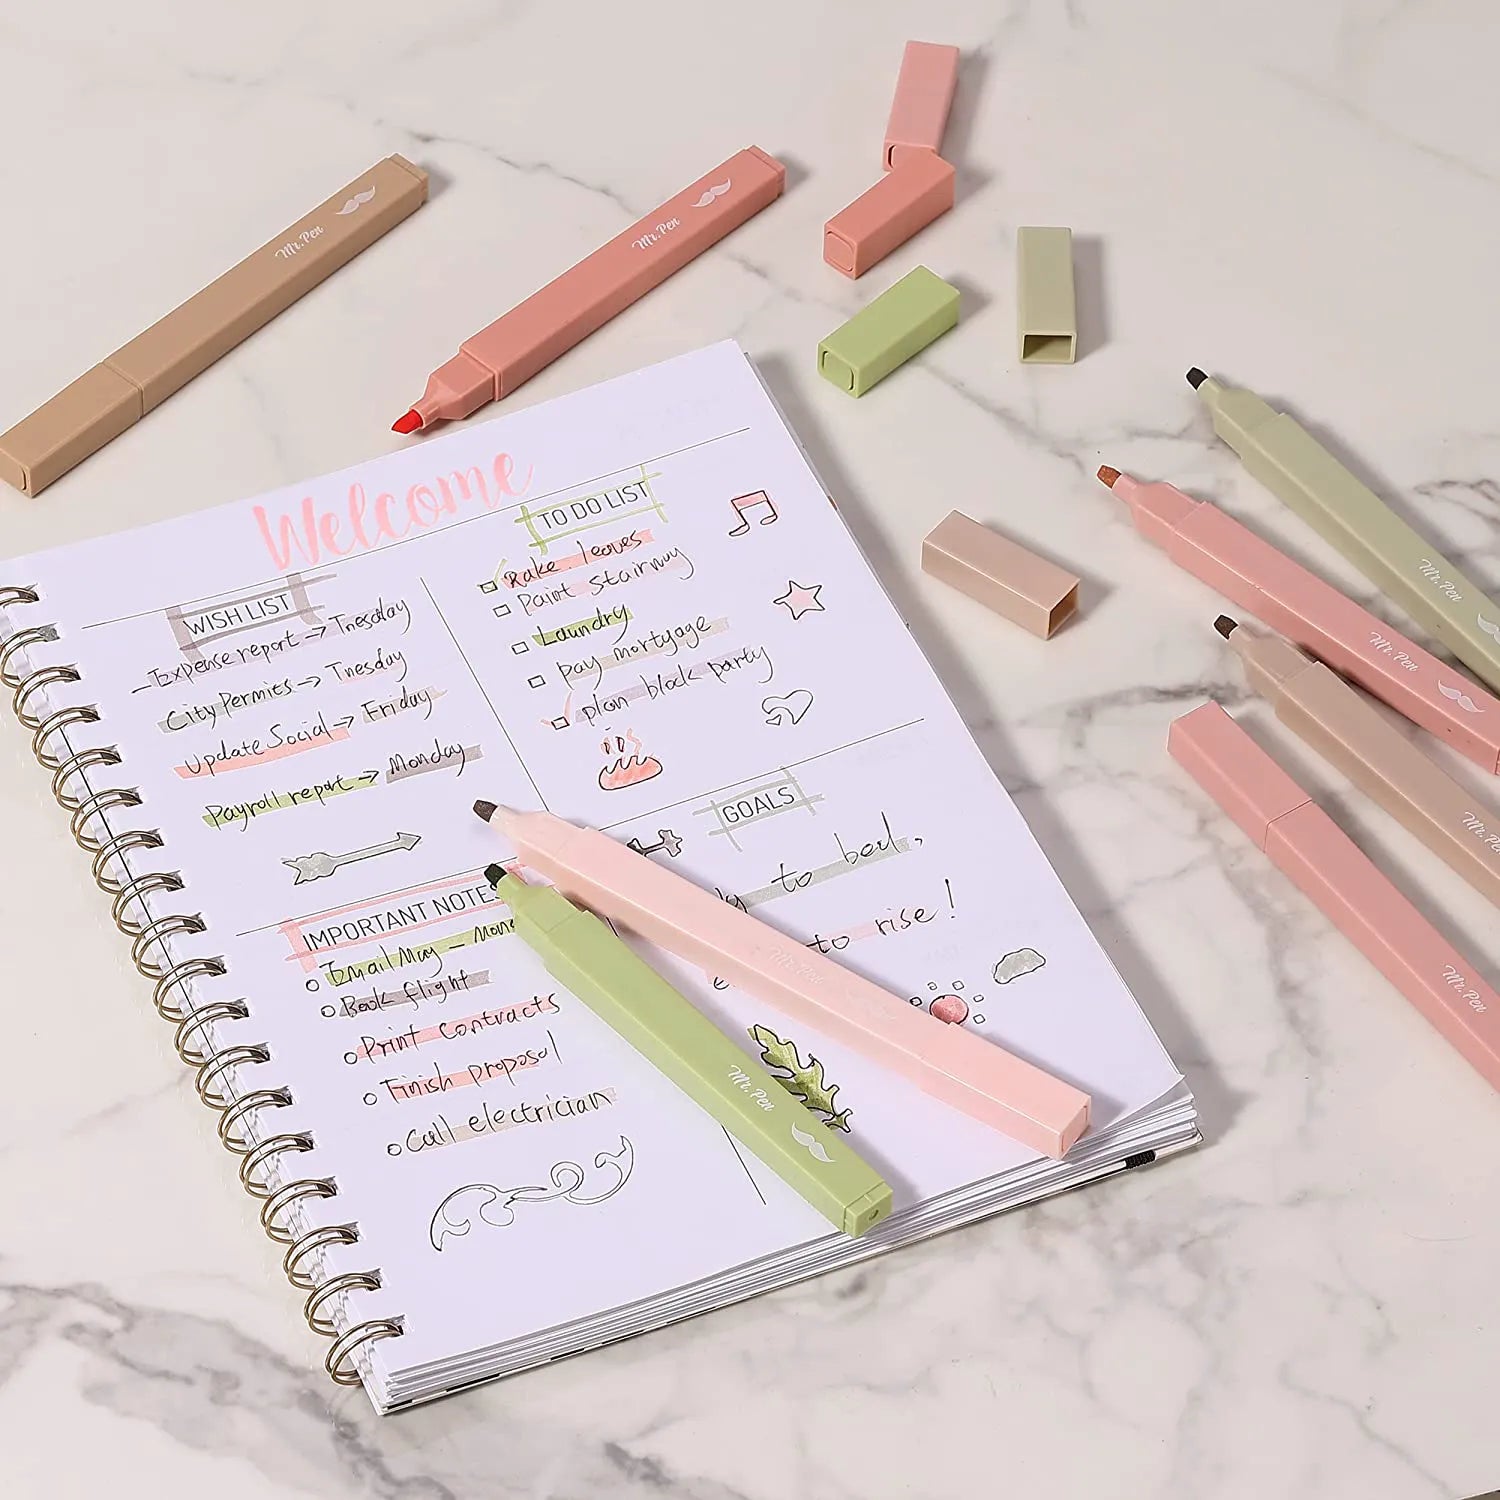 Mr. Pen
Mr. Pen
Welcome
WISH LIST
Expense report → Tnesday
City Permits → Tnesday
Update Social → Friday
Payroll report → Monday
TO DO LIST
Rake. leaves
Paint stairwuy
Laundry
pay mortgage
plan block party
GOALS
to bed,
to rise!
IMPORTANT NOTES
Email Muy –
Book flight
Print contracts
Finish proposal
Call electrician
Mr. Pen
Mr. Pen
Mr. Pen
Mr. Pen
Mr. Pen
Mr. Pen